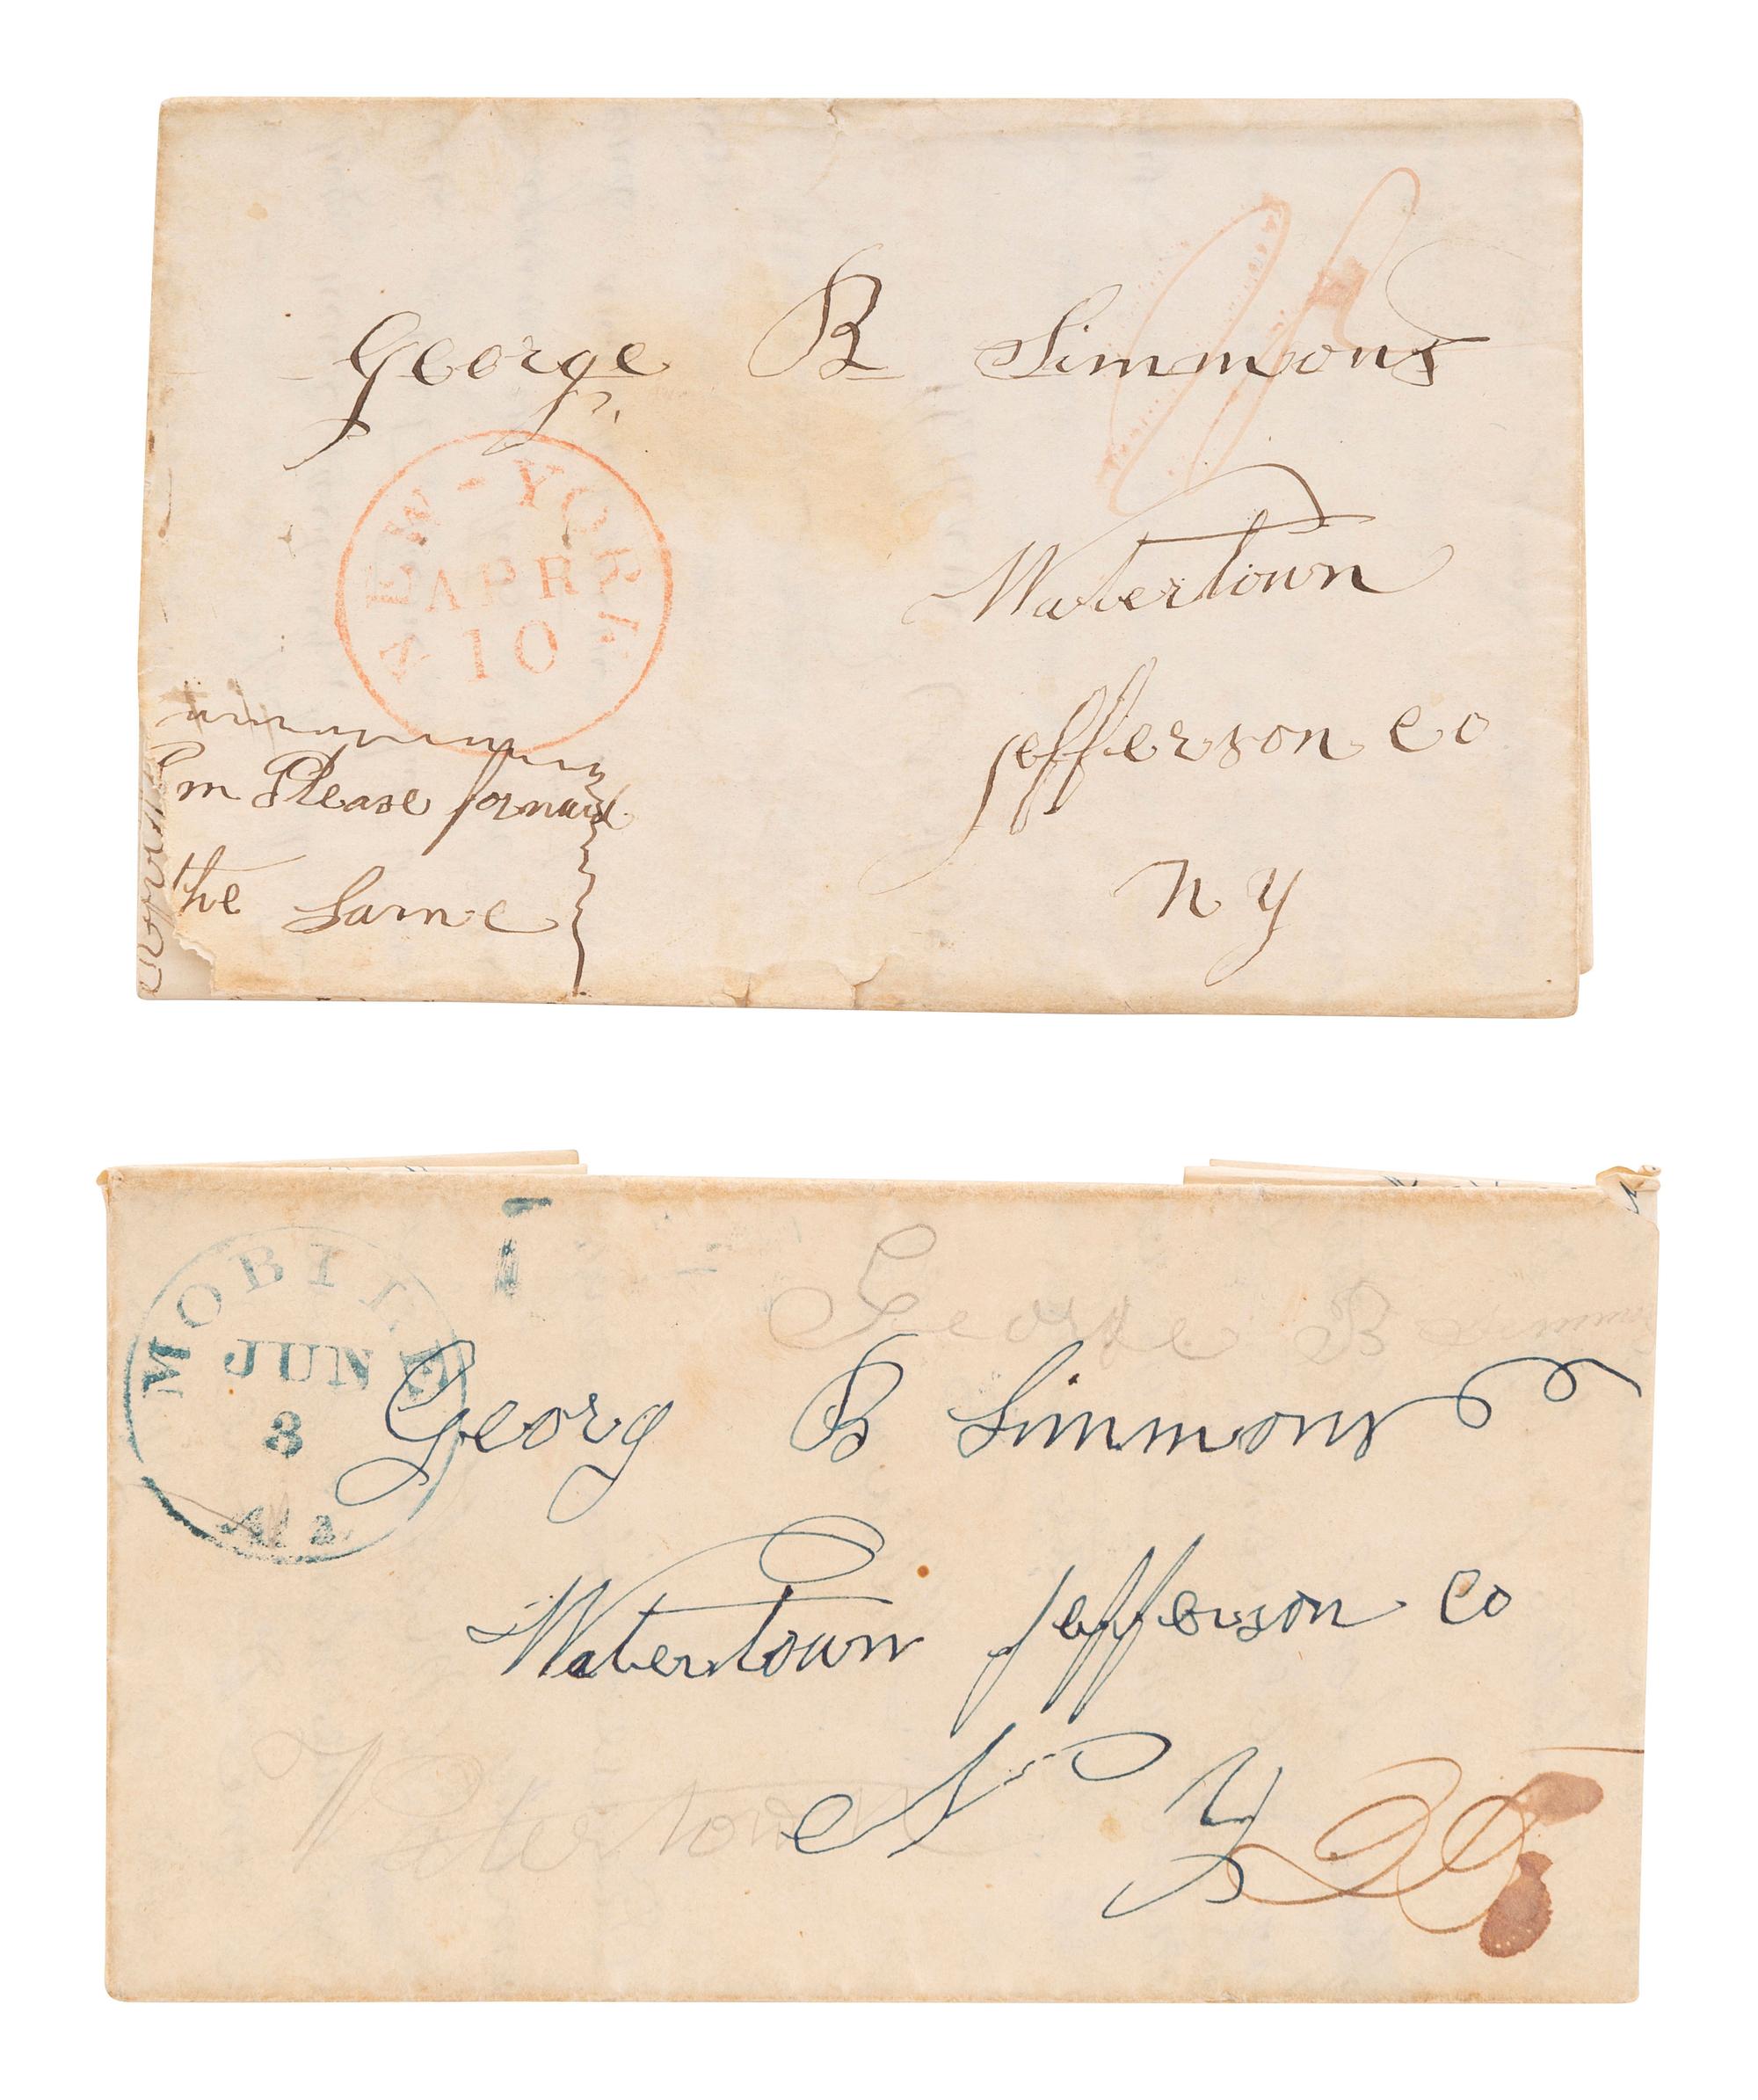 George B Simmons
NEW-YORK
APR
10
Watertown
Jefferson Co
N Y
Pm Please forward
the Same
MOBILE
JUN
3
Ala
George B
Georg B Simmons
Watertown Jefferson Co
N Y
Watertown